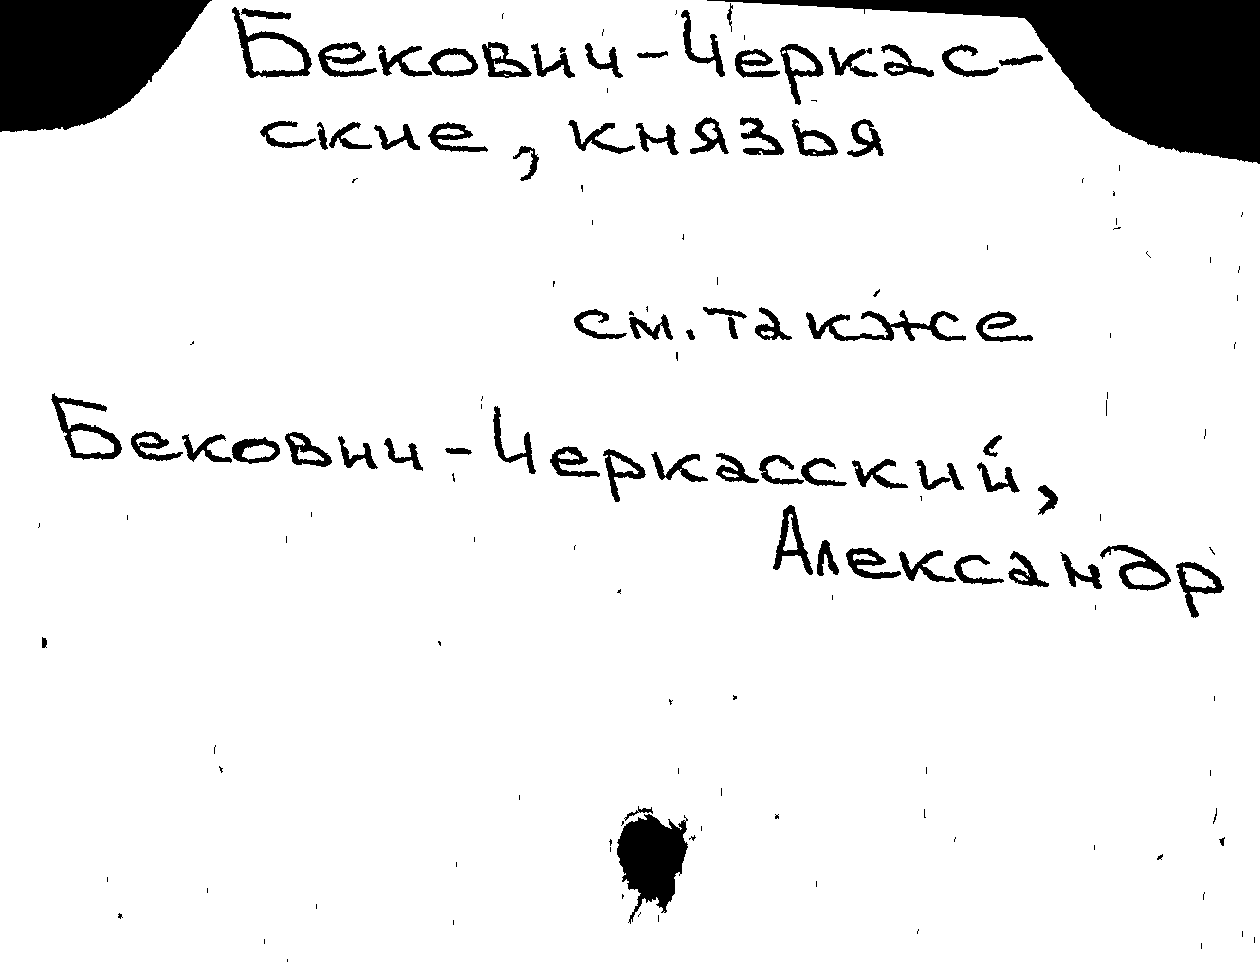 Бекович-Черкас-
ские, князья
см. также
Бекович-Черкасский,
Александр